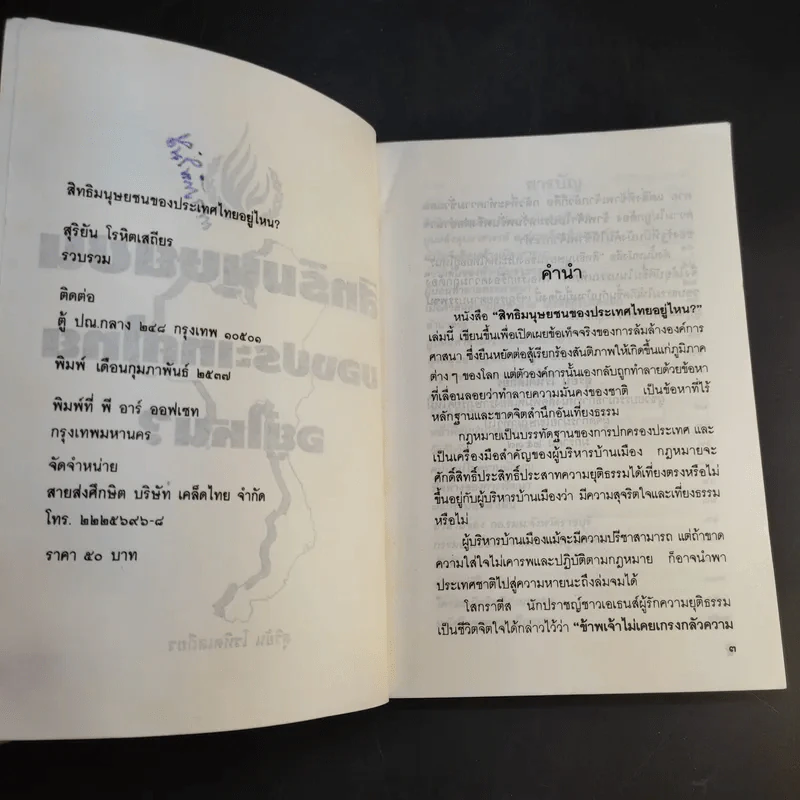 สิทธิมนุษยชนของประเทศไทยอยู่ไหน?
สุริยัน โรหิตเสถียร
รวบรวม
ติดต่อ
ตู้ ปณ.กลาง ๒๔๘ กรุงเทพ ๑๐๕๐๑
พิมพ์ เดือนกุมภาพันธ์ ๒๕๓๗
พิมพ์ที่ พี อาร์ ออฟเซท
กรุงเทพมหานคร
จัดจำหน่าย
สายส่งศึกษิต บริษัท เคล็ดไทย จำกัด
โทร. ๒๒๒๕๖๙๖-๘
ราคา ๕๐ บาท
คำนำ
หนังสือ "สิทธิมนุษยชนของประเทศไทยอยู่ไหน?"
เล่มนี้ เขียนขึ้นเพื่อเปิดเผยข้อเท็จจริงของการล้มล้างองค์การ
ศาสนา ซึ่งยืนหยัดต่อสู้เรียกร้องสันติภาพให้เกิดขึ้นแก่ภูมิภาค
ต่าง ๆ ของโลก แต่ตัวองค์การนั้นเองกลับถูกทำลายด้วยข้อหา
ที่เลื่อนลอยว่าทำลายความมั่นคงของชาติ เป็นข้อหาที่ไร้
หลักฐานและขาดจิตสำนึกอันเที่ยงธรรม
กฎหมายเป็นบรรทัดฐานของการปกครองประเทศ และ
เป็นเครื่องมือสำคัญของผู้บริหารบ้านเมือง กฎหมายจะ
ศักดิ์สิทธิ์ประสิทธิ์ประสาทความยุติธรรมได้เที่ยงตรงหรือไม่
ขึ้นอยู่กับผู้บริหารบ้านเมืองว่า มีความสุจริตใจและเที่ยงธรรม
หรือไม่
ผู้บริหารบ้านเมืองแม้จะมีความปรีชาสามารถ แต่ถ้าขาด
ความใส่ใจไม่เคารพและปฏิบัติตามกฎหมาย ก็อาจนำพา
ประเทศชาติไปสู่ความหายนะถึงล่มจมได้
โสกราตีส นักปราชญ์ชาวเอเธนส์ผู้รักความยุติธรรม
เป็นชีวิตจิตใจได้กล่าวไว้ว่า "ข้าพเจ้าไม่เคยเกรงกลัวความ
๓